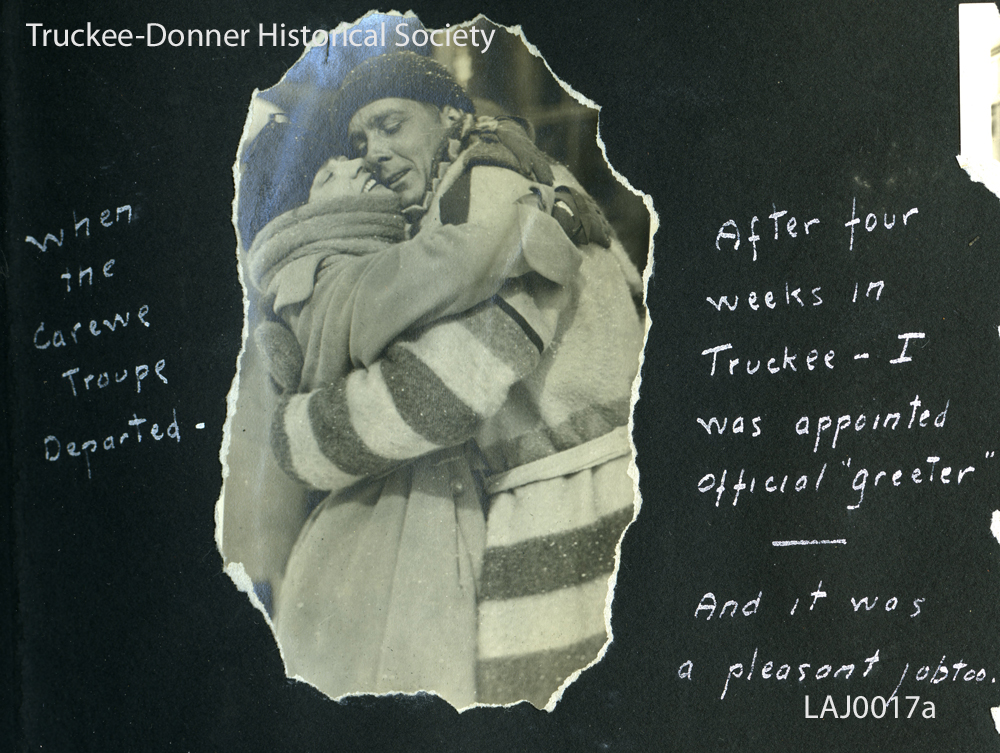 Truckee-Donner Historical Society
When
the
Carewe
Troupe
Departed -
After four
weeks in
Truckee - I
was appointed
official "greeter"
And it was
a pleasant job too.
LAJ0017a